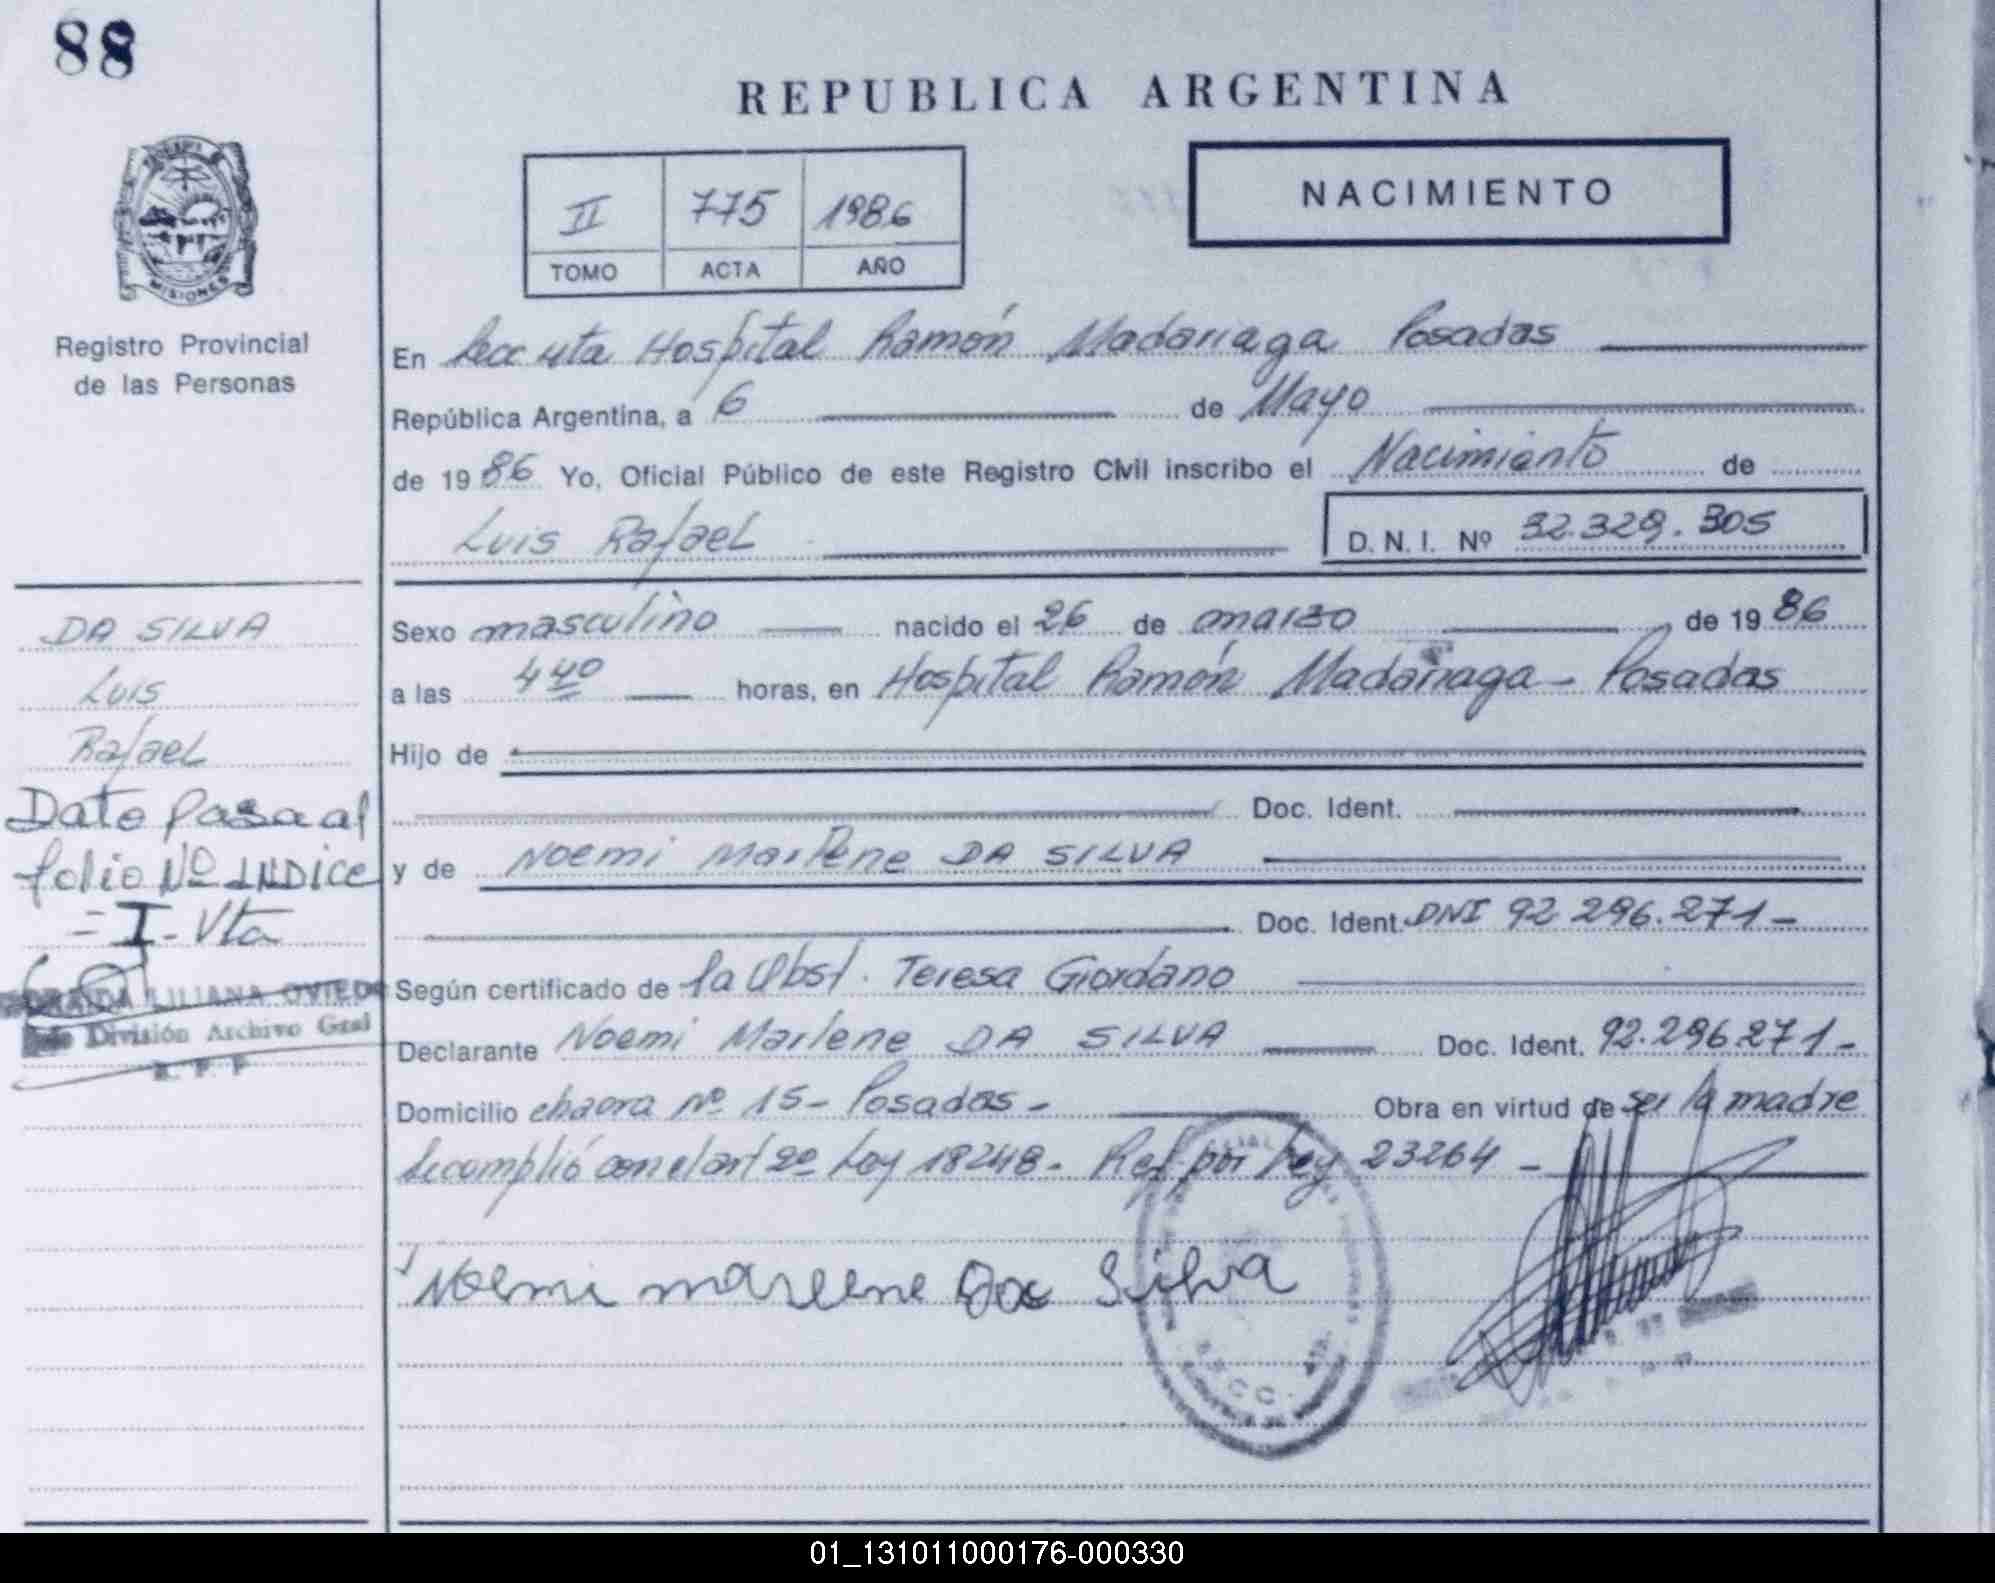 88
REPUBLICA ARGENTINA
II 775 1986
TOMO ACTA AÑO
NACIMIENTO
MISIONES
Registro Provincial
de las Personas
En Hospital Ramón Madariaga Posadas
República Argentina, a 6 de Mayo
de 1986 Yo, Oficial Público de este Registro Civil inscribo el Nacimiento de
Luis Rafael D. N. I. Nº 32.329.305
DA SILVA
Luis
Rafael
Dato Pasa al
folio Nº INDICE
= I - Vta
LILIANA OVIEDO
División Archivo Gral
Sexo masculino nacido el 26 de marzo de 1986
a las 4 40 horas, en Hospital Ramón Madariaga - Posadas
Hijo de
Doc. Ident.
y de Noemi Marlene DA SILVA
Doc. Ident. DNI 92 296.271-
Según certificado de la Obst. Teresa Giordano
Declarante Noemi Marlene DA SILVA Doc. Ident. 92.296.271-
Domicilio chacra nº 15- Posadas- Obra en virtud de ser la madre
Se cumplió con el art 2º Ley 18248- Ref. por Ley 23264 -
Noemi marlene Da Silva
01_131011000176-000330